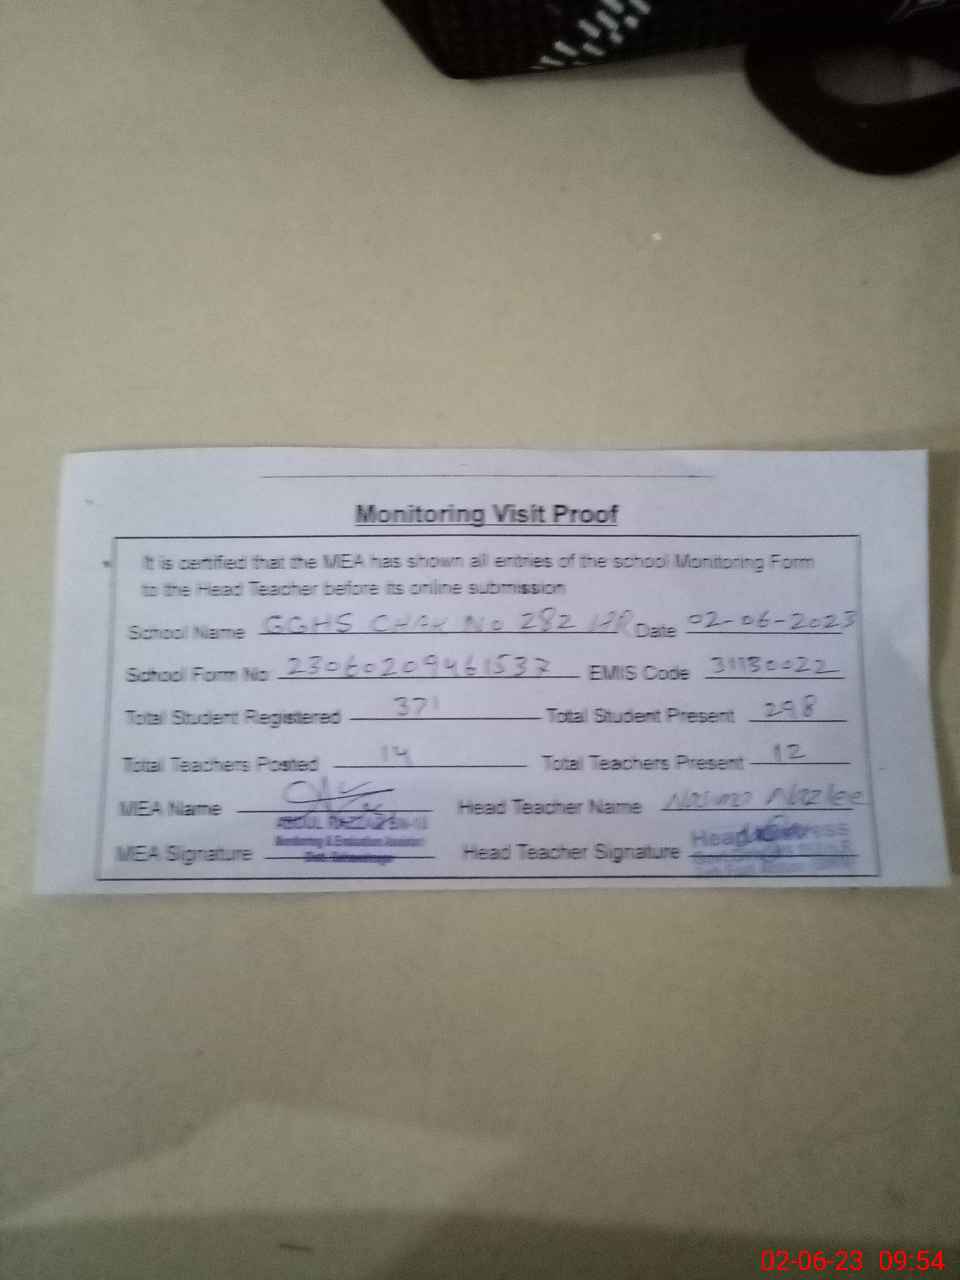 Monitoring Visit Proof
It is certified that the MEA has shown all entries of the school Monitoring Form
to the Head Teacher before its online submission
School Name GGHS CHAK No 282 Date 02-06-2023
School Form No 23060209461537 EMIS Code 31130022
Total Student Registered 371 Total Student Present 298
Total Teachers Posted 14 Total Teachers Present 12
MEA Name Head Teacher Name
ABDUL
Monitoring & Evaluation Assistant
MEA Signature Head Teacher Signature
02-06-23 09:54